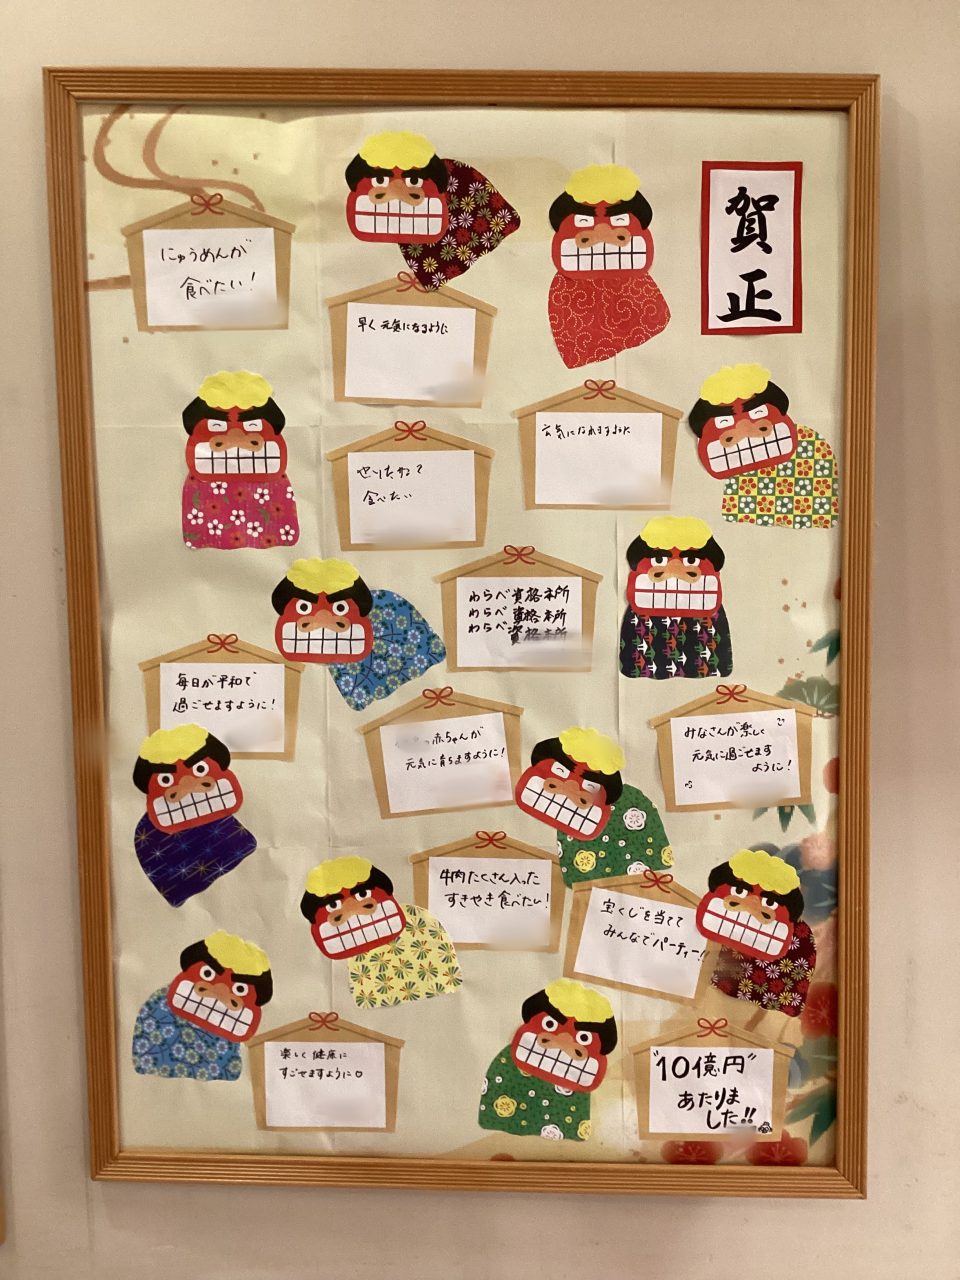 賀正
にゅうめんが
食べたい!
早く元気になるように
元気になれますように
食べたい
わらべ資格本所
わらべ資格本所
わらべ資格本所
毎日が平和で
過ごせますように!
赤ちゃんが
元気に育ちますように!
みなさんが楽しく
元気に過ごせます
ように!
牛肉たくさん入った
すきやき食べたい!
宝くじを当てて
みんなでパーティー!!
楽しく健康に
すごせますように♡
"10億円"
あたりま
した!!